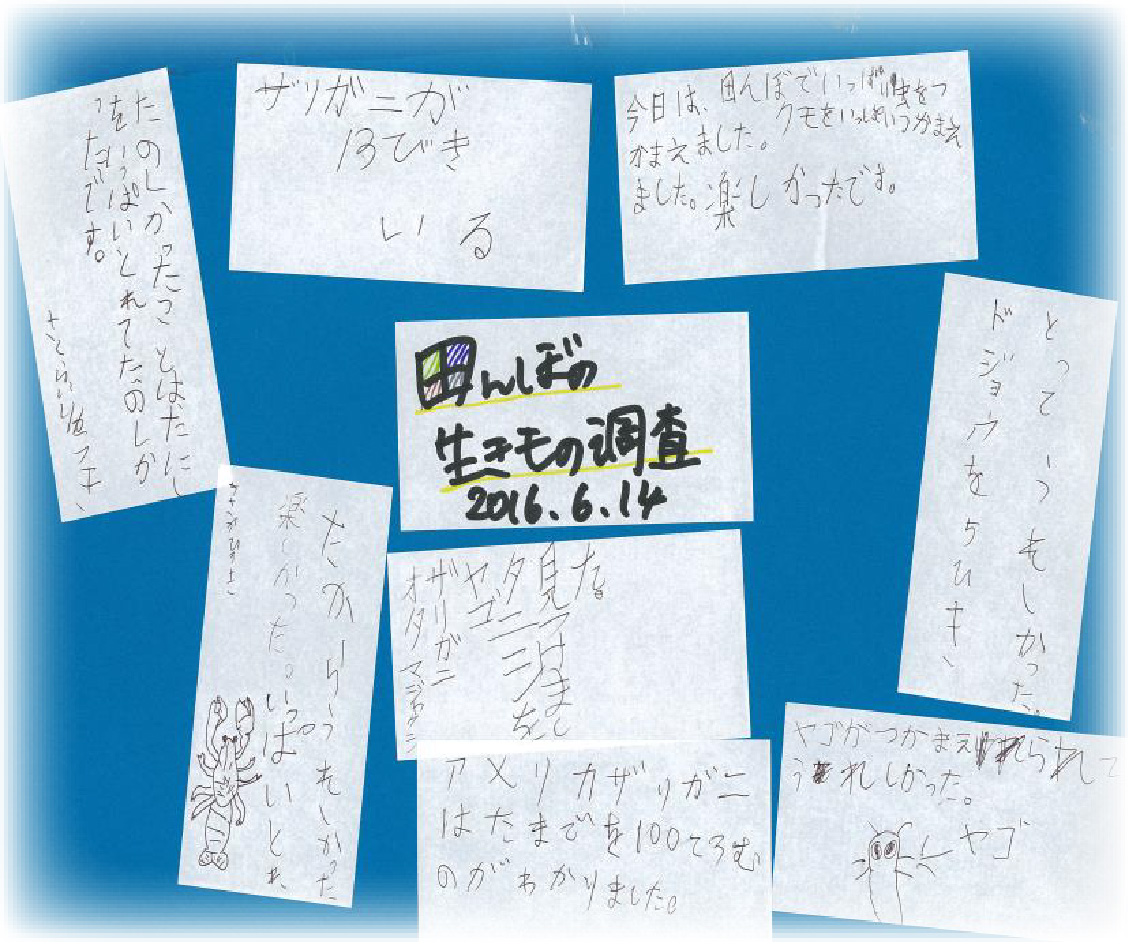 田んぼの
生きモの調査
2016.6.14
ザリガニが
13びき
いる
今日は、田んぼでいっぱい虫をつ
かまえました。クモをいっぱいつかまえ
ました。楽しかったです。
たのしかったことはだにし
をいっぱいとれてたのしか
ったです。
とって
しかった。
ドジョウを5ひき
しかった
楽しかった。いっぱいとれ
た。
見つけまし
タニシを
ヤゴ
ザリガニ
オタマジャクシ
アメリカザリガニ
はたまごを100てうむ
のがわかりました。
ヤゴがつかまえられて
うれしかった。
ヤゴ